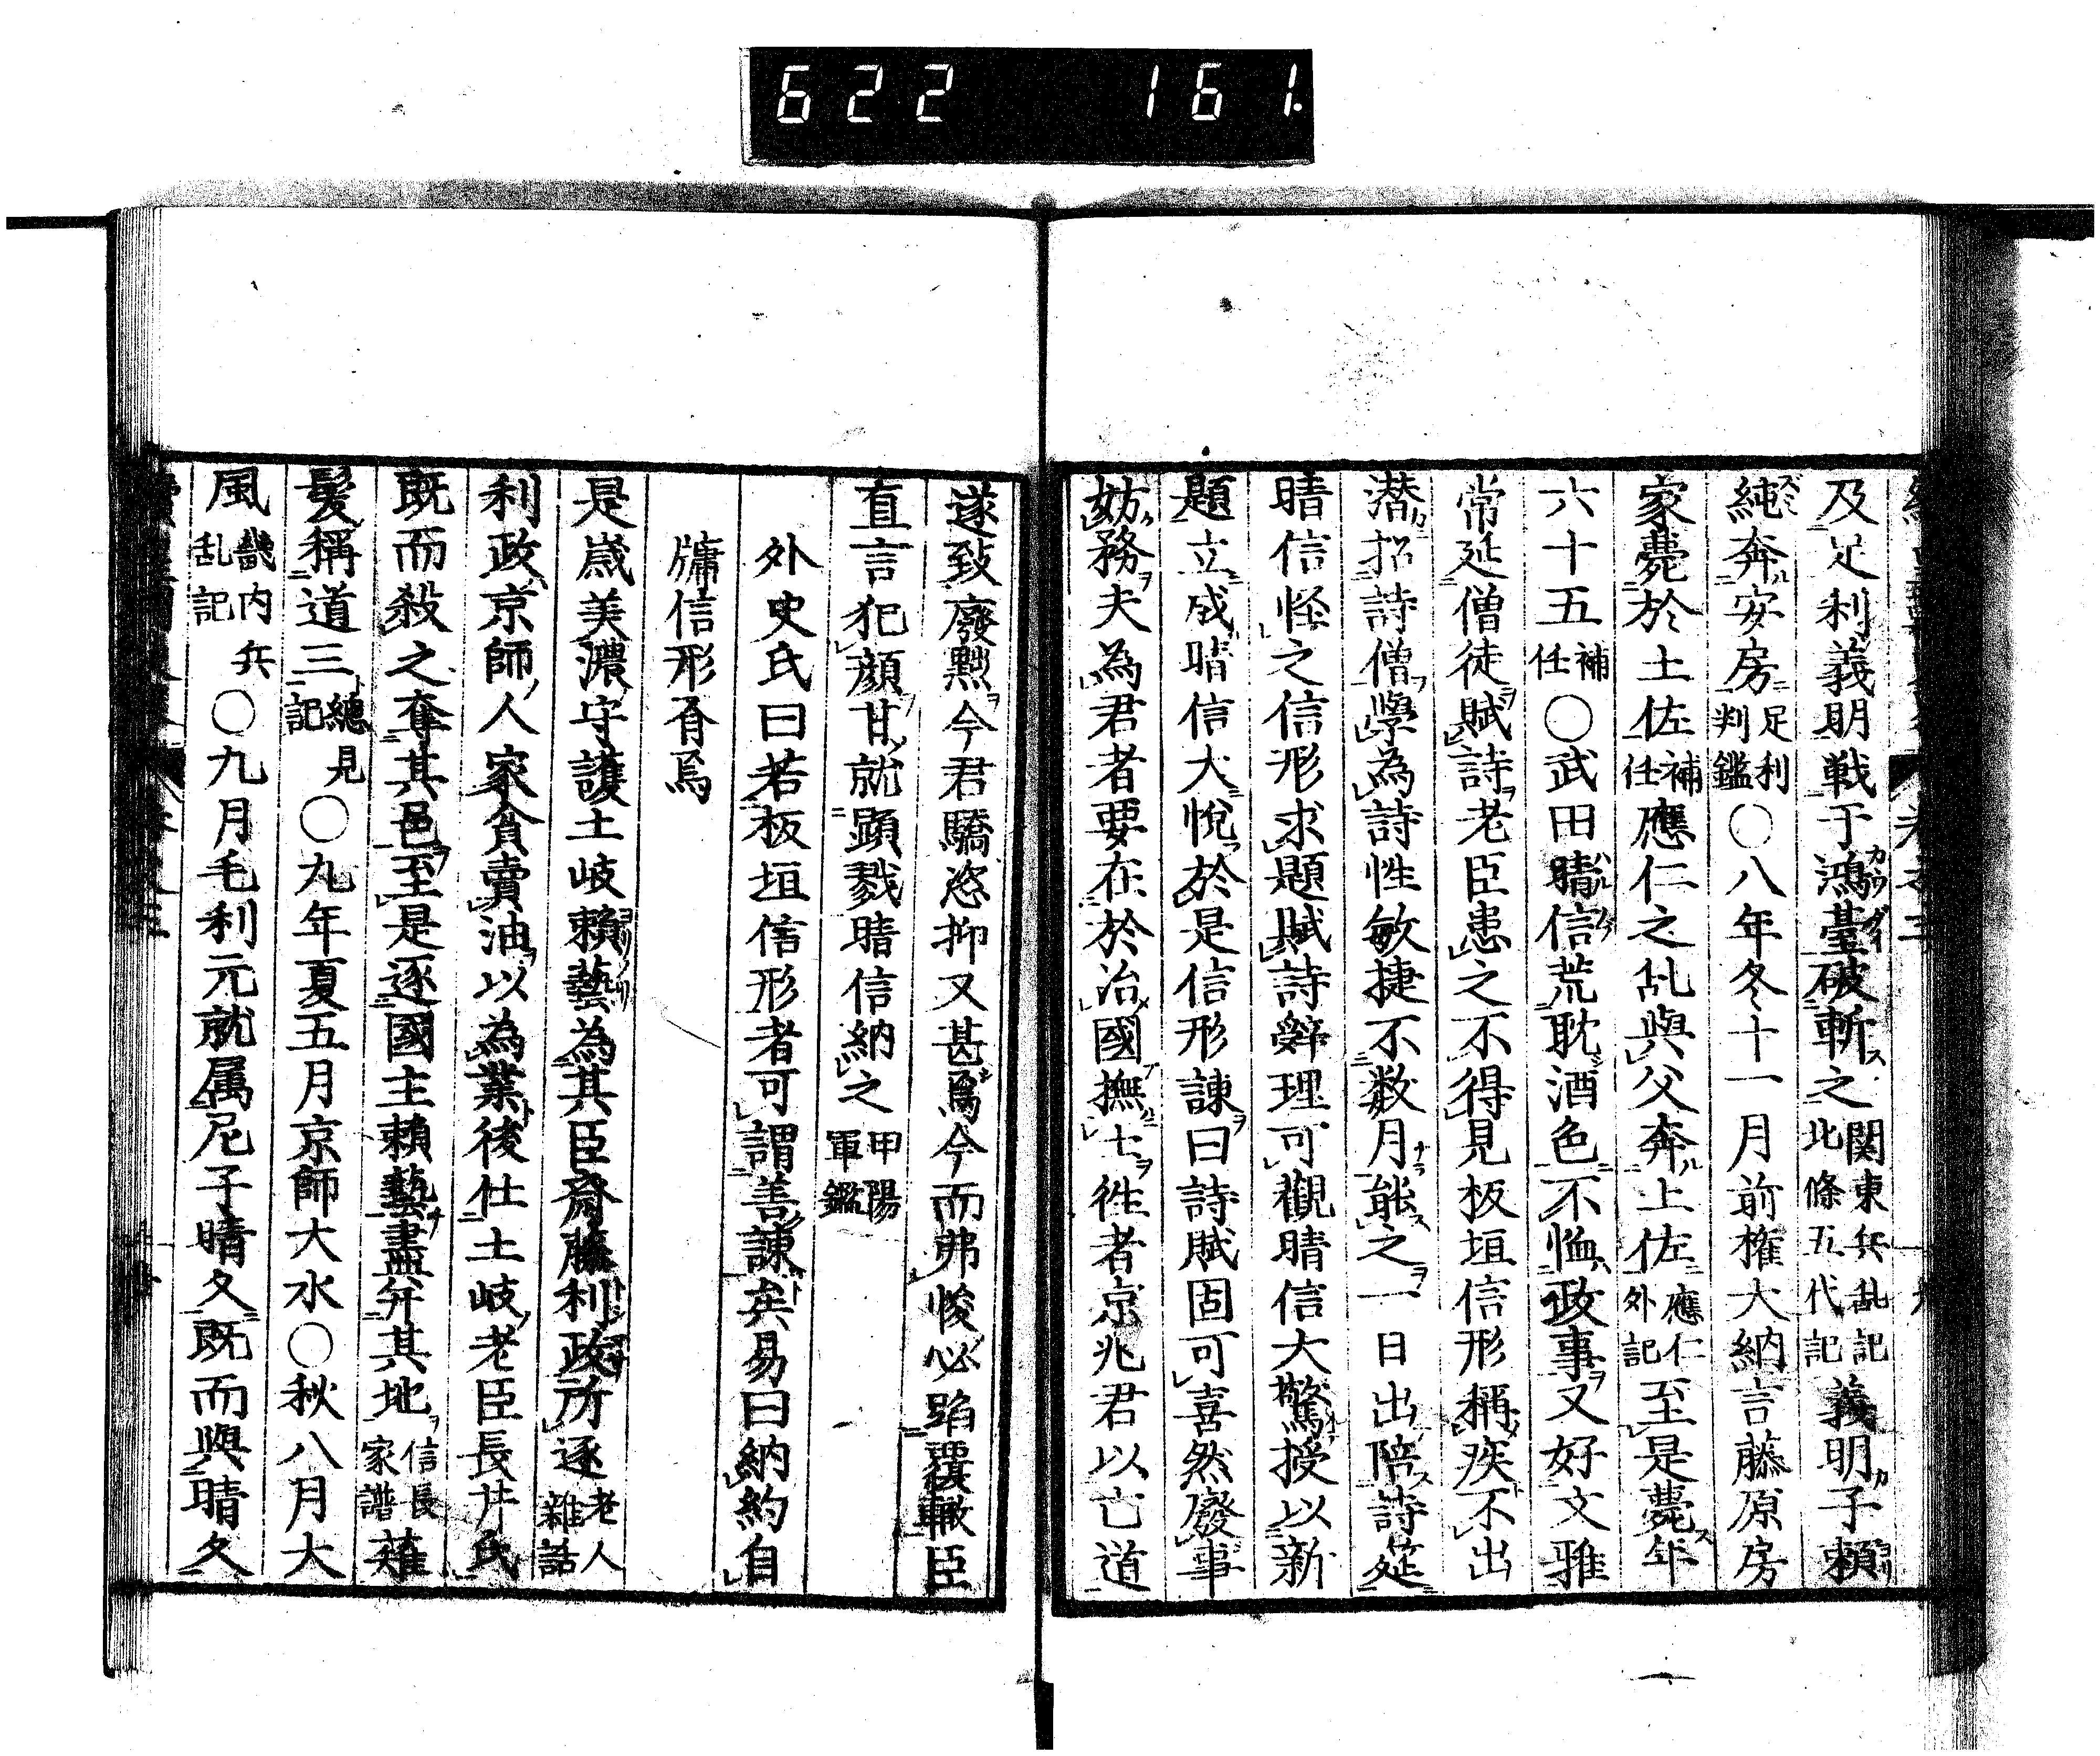 622 161.
及足利義明戦于鴻臺破斬之関東兵乱記北條五代記義明子頼
純奔安房足利判鑑〇八年冬十一月前権大納言藤原房
家薨於土佐補任應仁之乱與父奔土佐應仁外記至是薨年
六十五補任〇武田晴信荒耽酒色不恤政事又好文雅
常延僧徒賦詩老臣患之不得見板垣信形稱疾不出
潜招詩僧學為詩性敏捷不数月能之一日出陪詩筵
晴信怪之信形求題賦詩辞理可觀晴信大驚授以新
題立成晴信大悅於是信形諫曰詩賦固可喜然廢事
妨務夫為君者要在於治國撫士徃者京兆君以亡道
遂致廢黜今君驕恣抑又甚焉今而弗悛必蹈覆轍臣
直言犯顔甘就顕戮晴信納之甲陽軍鑑
外史氏曰若板垣信形者可謂善諫矣易曰納約自
牖信形有焉
是歳美濃守護土岐頼藝為其臣斎藤利政所逐老人雑話
利政京師人家貧賣油以為業後仕土岐老臣長井氏
既而殺之奪其邑至是逐國主頼藝盡并其地信長家譜薙
髪稱道三總見記〇九年夏五月京師大水〇秋八月大
風畿内兵乱記〇九月毛利元就属尼子晴久既而與晴久